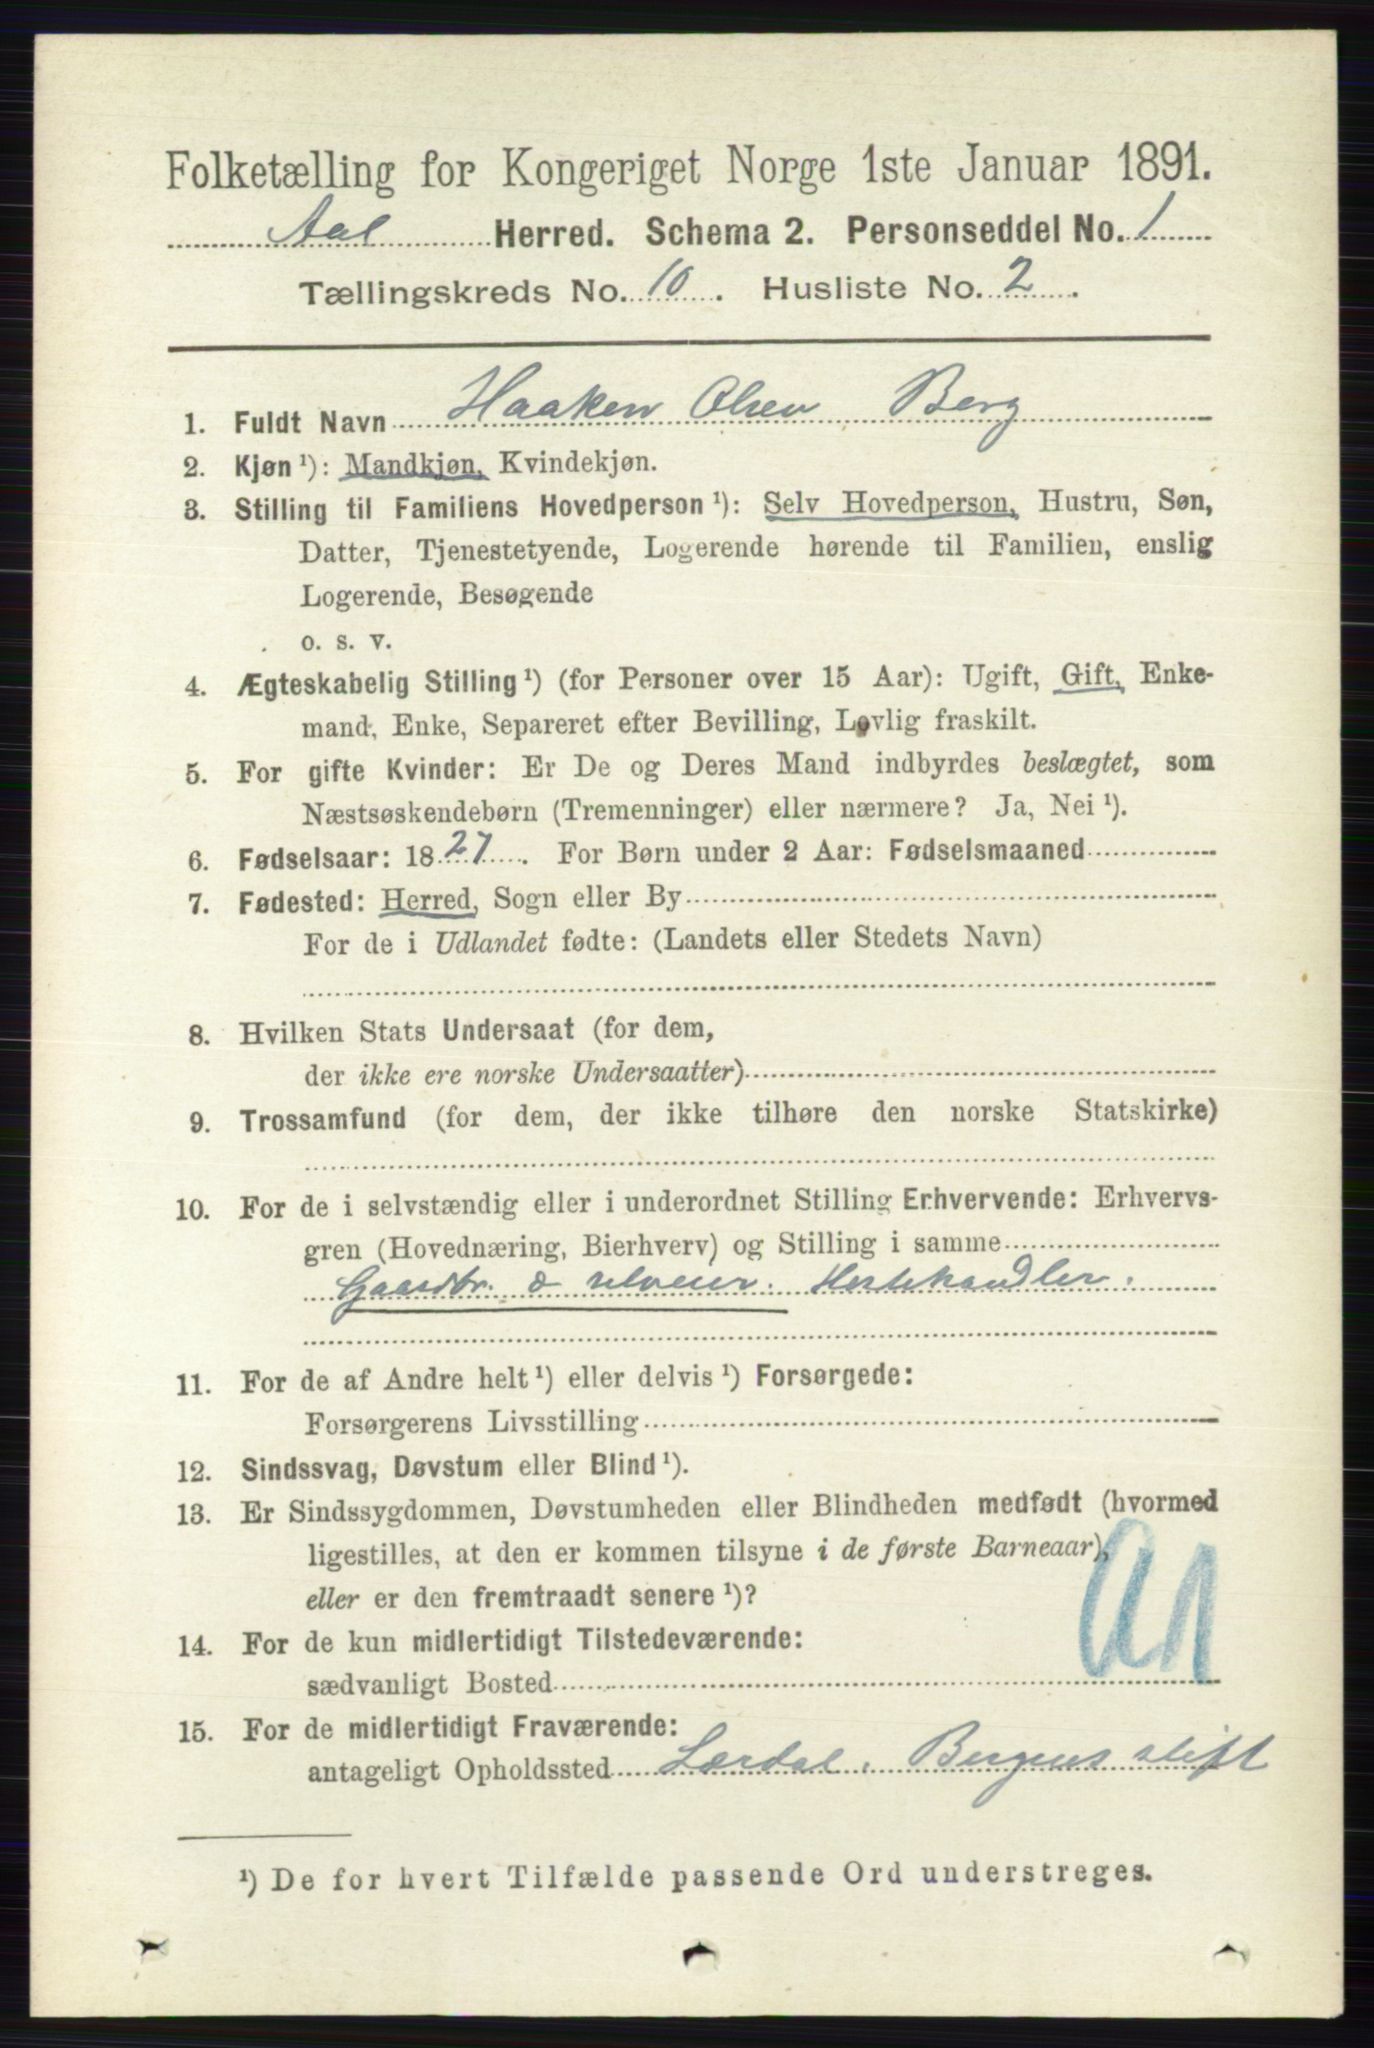 Folketælling for Kongeriget Norge 1ste Januar 1891.
Aal Herred. Schema 2. Personseddel No. 1
Tællingskreds No. 10. Husliste No. 2.
1. Fuldt Navn Haaken Olsen Berg
2. Kjøn ¹): Mandkjøn, Kvindekjøn.
3. Stilling til Familiens Hovedperson ¹): Selv Hovedperson, Hustru, Søn,
Datter, Tjenestetyende, Logerende hørende til Familien, enslig
Logerende, Besøgende
o. s. v.
4. Ægteskabelig Stilling ¹) (for Personer over 15 Aar): Ugift, Gift, Enke-
mand, Enke, Separeret efter Bevilling, Lovlig fraskilt.
5. For gifte Kvinder: Er De og Deres Mand indbyrdes beslægtet, som
Næstsøskendebørn (Tremenninger) eller nærmere? Ja, Nei ¹).
6. Fødselsaar: 1827. For Børn under 2 Aar: Fødselsmaaned
7. Fødested: Herred, Sogn eller By
For de i Udlandet fødte: (Landets eller Stedets Navn)
8. Hvilken Stats Undersaat (for dem,
der ikke ere norske Undersaatter)
9. Trossamfund (for dem, der ikke tilhøre den norske Statskirke)
10. For de i selvstændig eller i underordnet Stilling Erhvervende: Erhvervs-
gren (Hovednæring, Bierhverv) og Stilling i samme
Gaardbr. o selveier. Hestehandler.
11. For de af Andre helt ¹) eller delvis ¹) Forsørgede:
Forsørgerens Livsstilling
12. Sindssvag, Døvstum eller Blind ¹).
13. Er Sindssygdommen, Døvstumheden eller Blindheden medfødt (hvormed
ligestilles, at den er kommen tilsyne i de første Barneaar),
eller er den fremtraadt senere ¹)?
14. For de kun midlertidigt Tilstedeværende:
sædvanligt Bosted
15. For de midlertidigt Fraværende:
antageligt Opholdssted Lærdal, Bergens stift
¹) De for hvert Tilfælde passende Ord understreges.